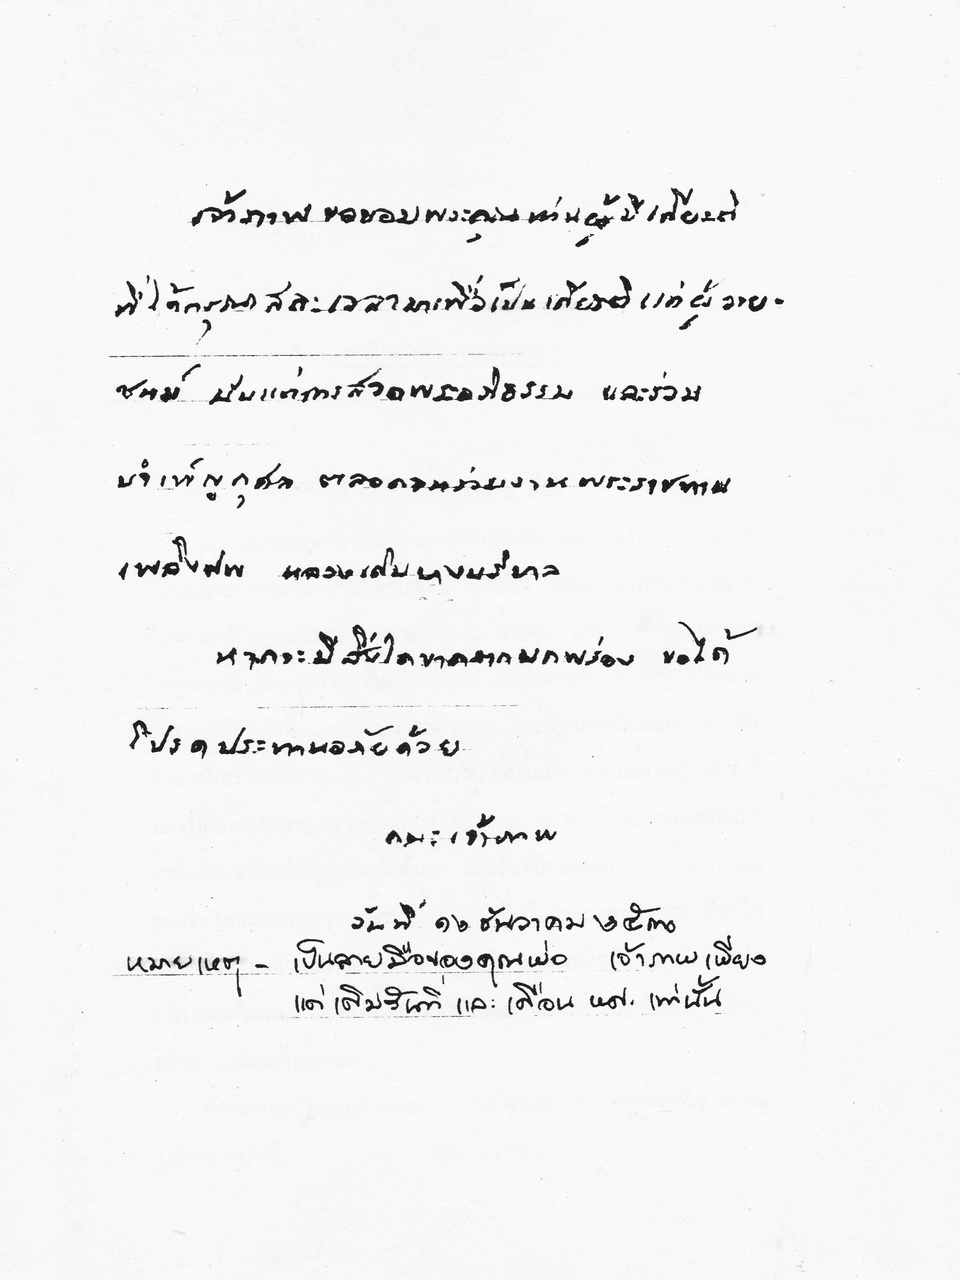 เจ้าภาพขอขอบพระคุณท่านผู้มีเกียรติ
ที่ได้กรุณาสละเวลามาเพื่อเป็นเกียรติแด่ผู้วาย-
ชนม์ นับแต่การสวดพระอภิธรรม และร่วม
บำเพ็ญกุศล ตลอดจนร่วมงานพระราชทาน
เพลิงศพ หลวงเดิมบางบริบาล
หากจะมีสิ่งใดขาดตกบกพร่อง ขอได้
โปรดประทานอภัยด้วย
คณะเจ้าภาพ
วันที่ ๑๖ ธันวาคม ๒๕๓๐
หมายเหตุ - เป็นลายมือของคุณพ่อ เจ้าภาพเพียง
แต่เติมวันที่ และเดือน พศ. เท่านั้น